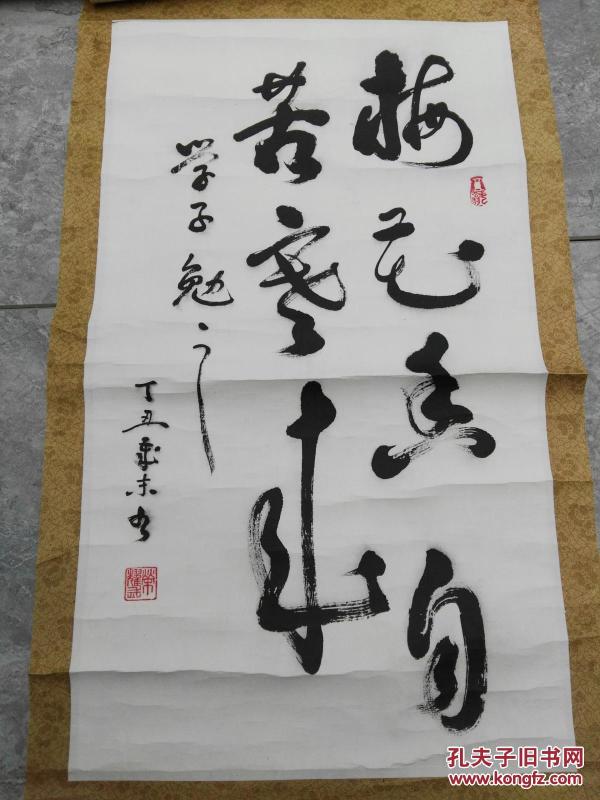 梅花香自
苦寒来
学子勉之
丁丑岁末书
孔夫子旧书网
www.kongfz.com